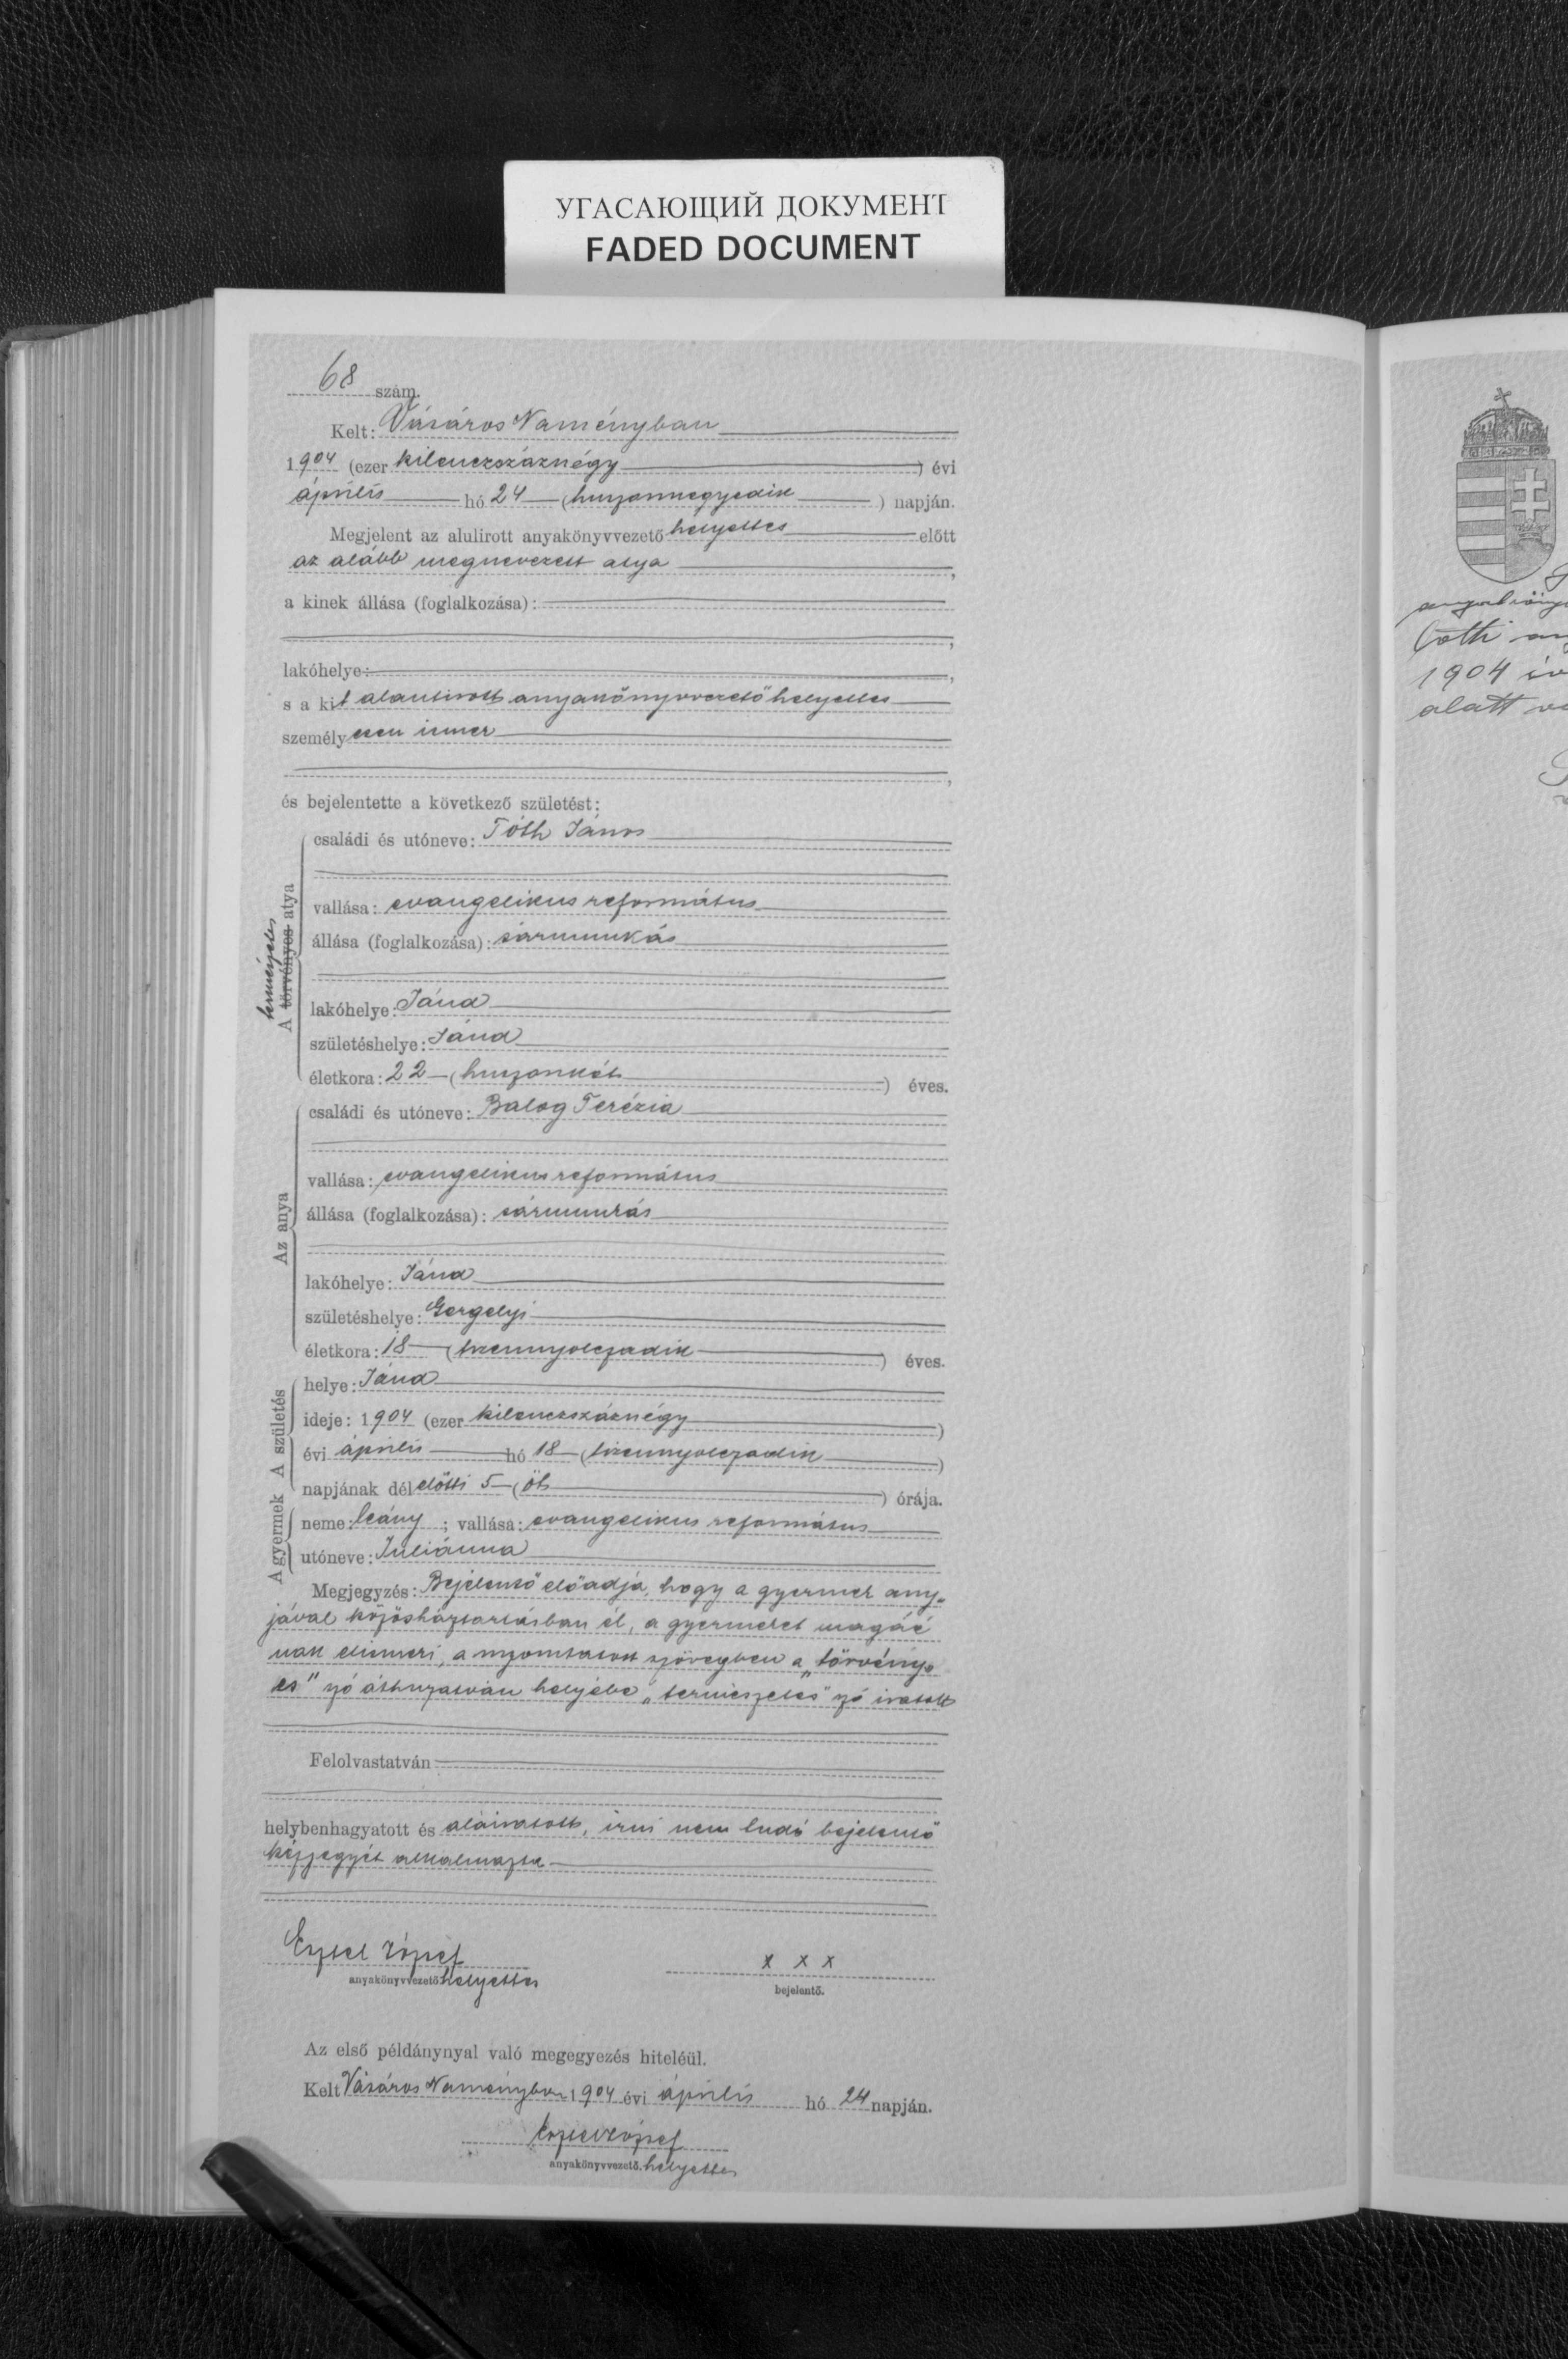 УГАСАЮЩИЙ ДОКУМЕНТ
FADED DOCUMENT
68 szám.
Kelt: Vásáros Naményban
1904 (ezer kilenczszáznégy) évi
április hó 24 (huszonnegyedik) napján.
Megjelent az alulirott anyakönyvvezető helyettes előtt
az alább megnevezett atya,
a kinek állása (foglalkozása):
lakóhelye:
s a kit alantirott anyakönyvvezető helyettes
személyesen ismer
és bejelentette a következő születést:
A törvényes természetes atya
családi és utóneve: Tóth János
vallása: evangelikus református
állása (foglalkozása): sármunkás
lakóhelye: Jánd
születéshelye: Jánd
életkora: 22 (huszonkét) éves.
Az anya
családi és utóneve: Balog Terézia
vallása: evangelikus református
állása (foglalkozása): sármunkás
lakóhelye: Jánd
születéshelye: Gergelyi
életkora: 18 (tizennyolczadik) éves.
A születés
helye: Jánd
ideje: 1904 (ezer kilenczszáznégy)
évi április hó 18 (tizennyolczadik)
napjának délelőtti 5 (öt) órája.
A gyermek
neme: leány; vallása: evangelikus református
utóneve: Juliánna
Megjegyzés: Bejelentő előadja, hogy a gyermek any-
jával közösháztartásban él, a gyermeket magáé
nak elismeri, a nyomtatott szövegben a „törvény-
es" szó áthuzatván helyébe „természetes" szó iratott
Felolvastatván
helybenhagyatott és aláiratott, irni nem tudó bejelentő
kézjegyét alkalmazta
József
anyakönyvvezető helyettes
x x x
bejelentő.
Az első példánynyal való megegyezés hiteléül.
Kelt Vásáros Naményban 1904 évi április hó 24 napján.
József
anyakönyvvezető. helyettes
1904 év
alatt